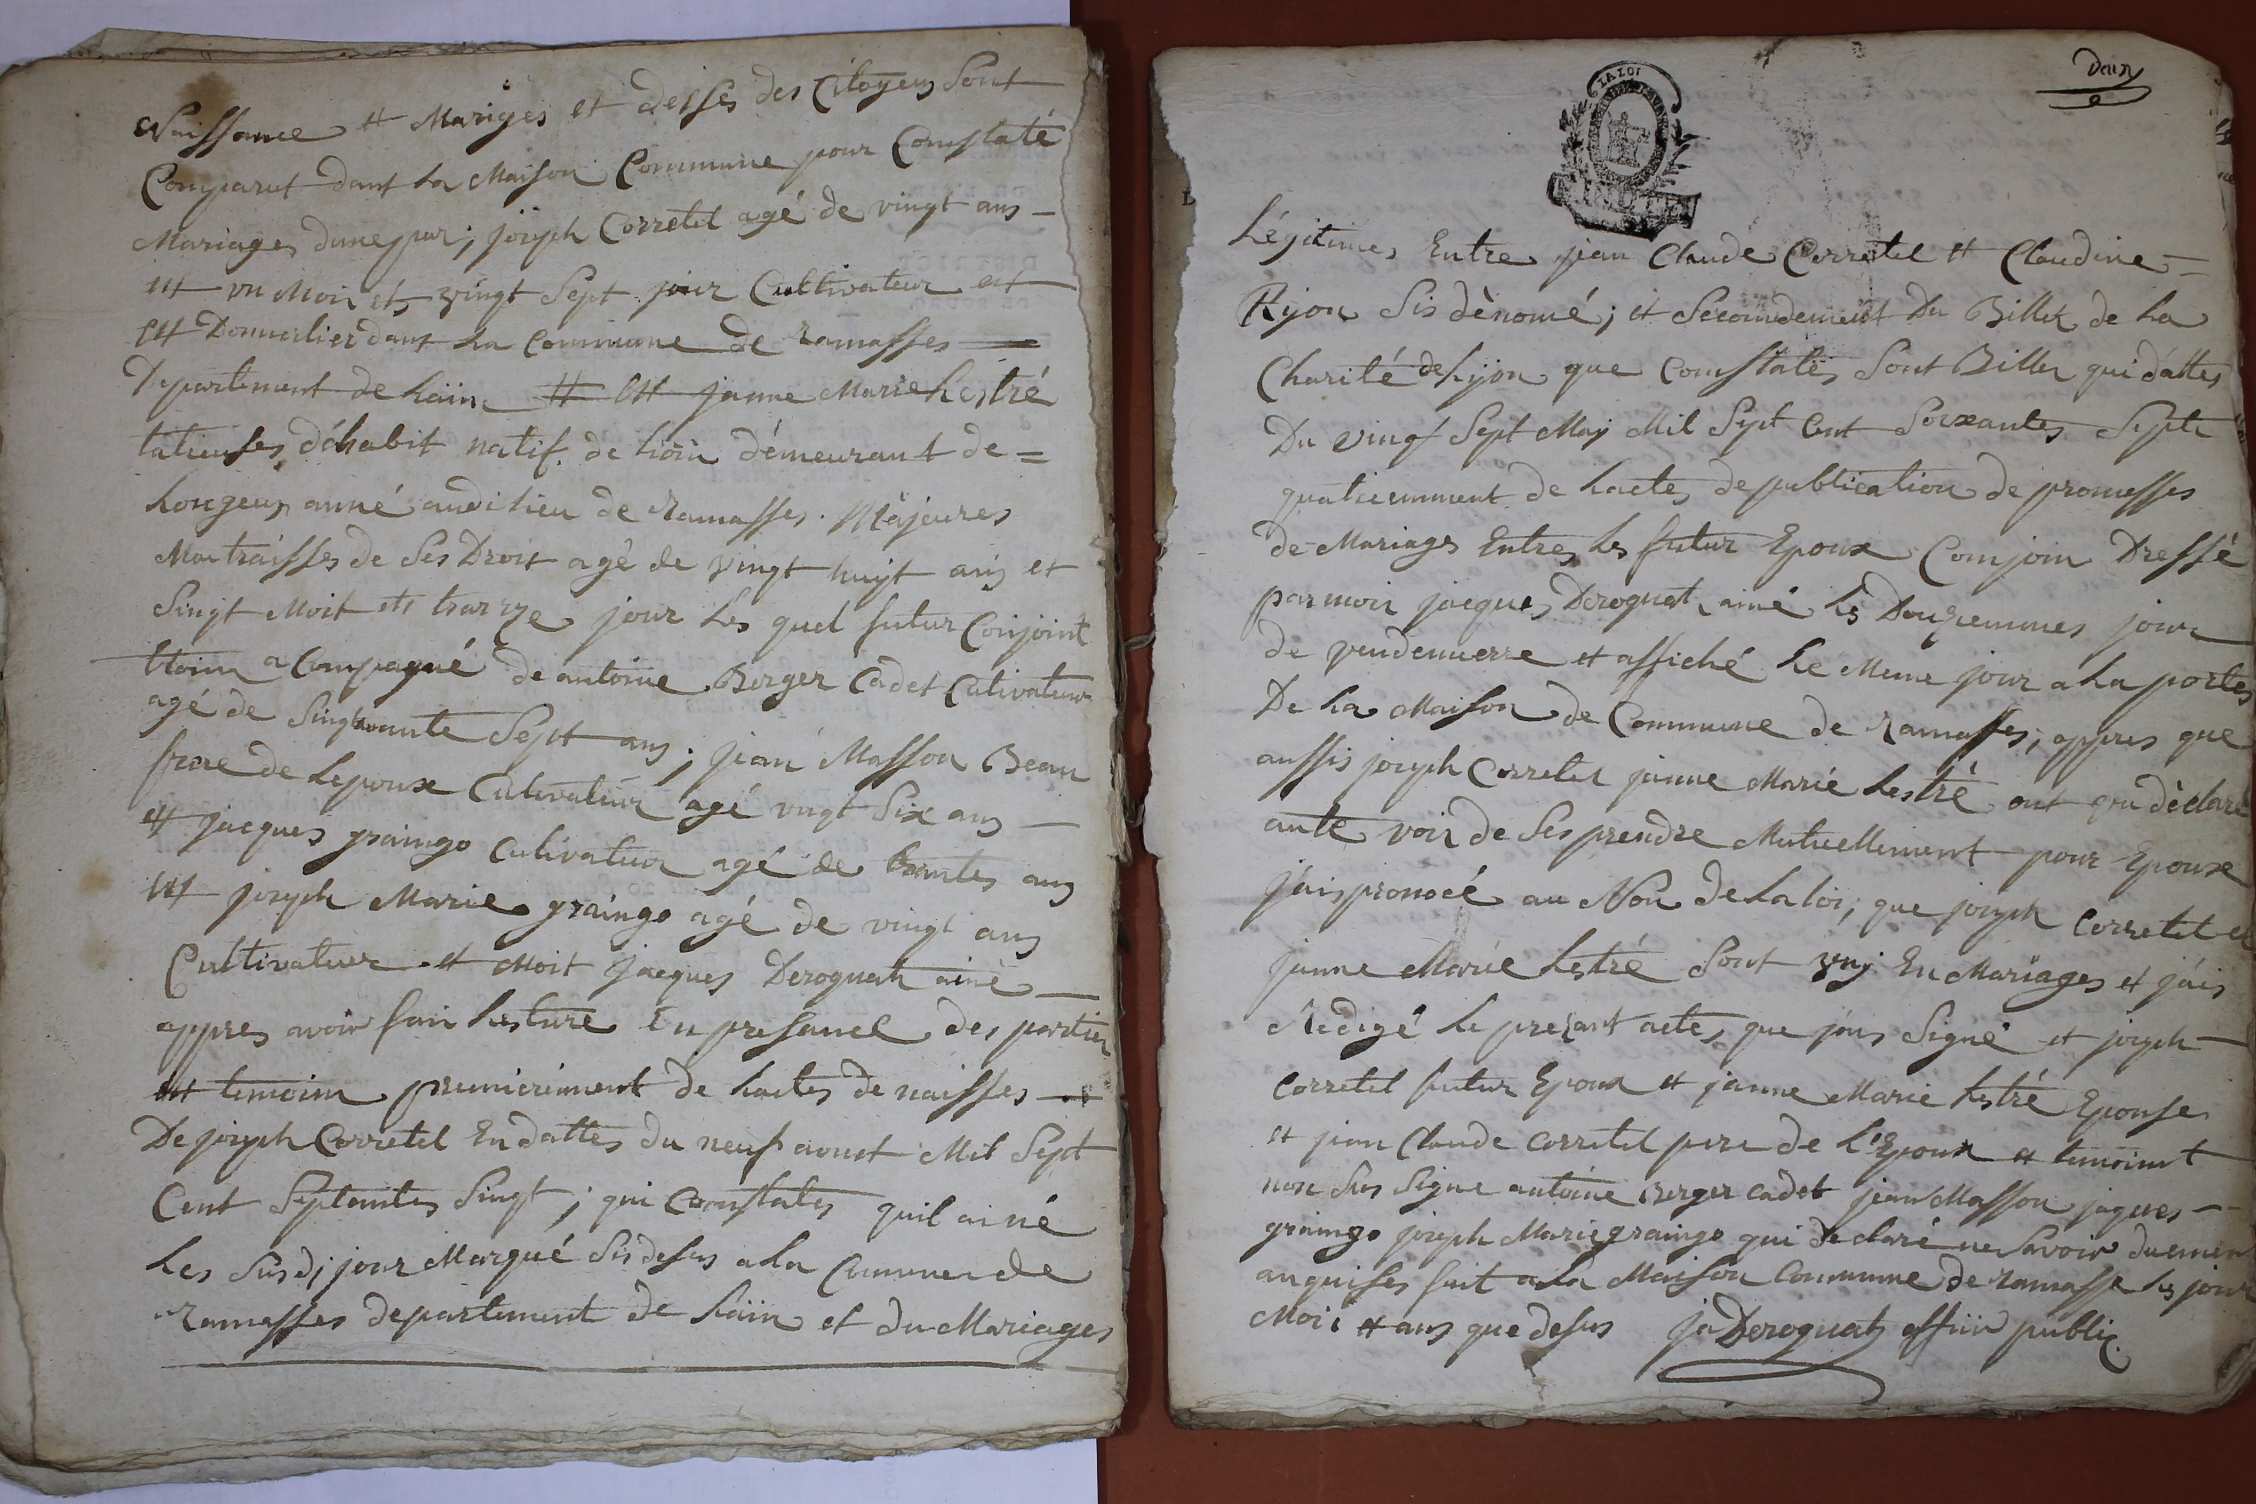 Naissance et Mariges et desses des Citoyens Sont
Comparut dant la Maison Commune pour Constaté
Mariages dune par; joseph Corretel agé de vingt ans
et un Moi et vingt Sept jour Cultivateur et
et Domicilier dant la Commune de ramasses
Departement de lain et jeanne Marie Lestré
talieuses d'habit natif de demeurant de
anné audi lieu de Ramasses. Majeures
Maitraisses de Ses Droit agé de vingt huyt ans et
Singt Moit et traize jour les quel futur Conjoint
a Compagné de antoine Berger Cadet Cultivateur
agé de Singtuante Sept ans; jean Masson Beau
frere de Lepoux Cultivateur agé vingt Six ans
et jacques graingo Cultivateur agé de trantes ans
et joseph Marie graingo agé de vingt ans
Cultivateur et Moit Jacques Deroguat ainé
appres avoir fair lesture En presance des partier
et temoim premierement de lactes de naisses
De joseph Corretel En dattes du neuf avout Mil Sept
Cent Septantes Singt; qui Constates quil ai né
Les Susdi jour Marqué Sis desus a la Commune de
Ramasses departement de lain et du Mariages
Deux
LA LOI
Légitimes Entre jean Claude Corretel et Claudine
Sis dènomé; et Secondement Du Billet de La
Charité de Lyon que Constates Sont Biller qui dattes
Du vingt Sept May Mil Sept Cent Soixantes Septe
quatriemment de Lactes de publication de promesses
de Mariages Entres les futur Epoux Comjoin Dressé
par moir jacques Deroguat ainé les Douziemmes jour
de vendemierre et affiché Le Meme jour a la portes
De la Maison de Commune de Ramasses; appres que
aussis joseph Corretel janne Marie Lestré ont déclaré
aute voir de Ses prendre Mutuellement pour Epoux
j'ais pronocé au Non De La loi; que joseph Corretel et
janne Marie Lestré Sont unj En Mariages et j'ais
Redigé le prezant actes que jais Signé et joseph
Corretel futur Epoux et janne Marie Lestré Epouse
et jean Claude Corretel pere de L'Epoux et temoimt
non Sus Signe antoine Berger cadet jean Masson jaques
graingo joseph Marie graingo qui declaré ne Savoir
anquisses fait a la Maison Commune de ramasse les jour
Moi et ans que desus ja Deroguat offiir public